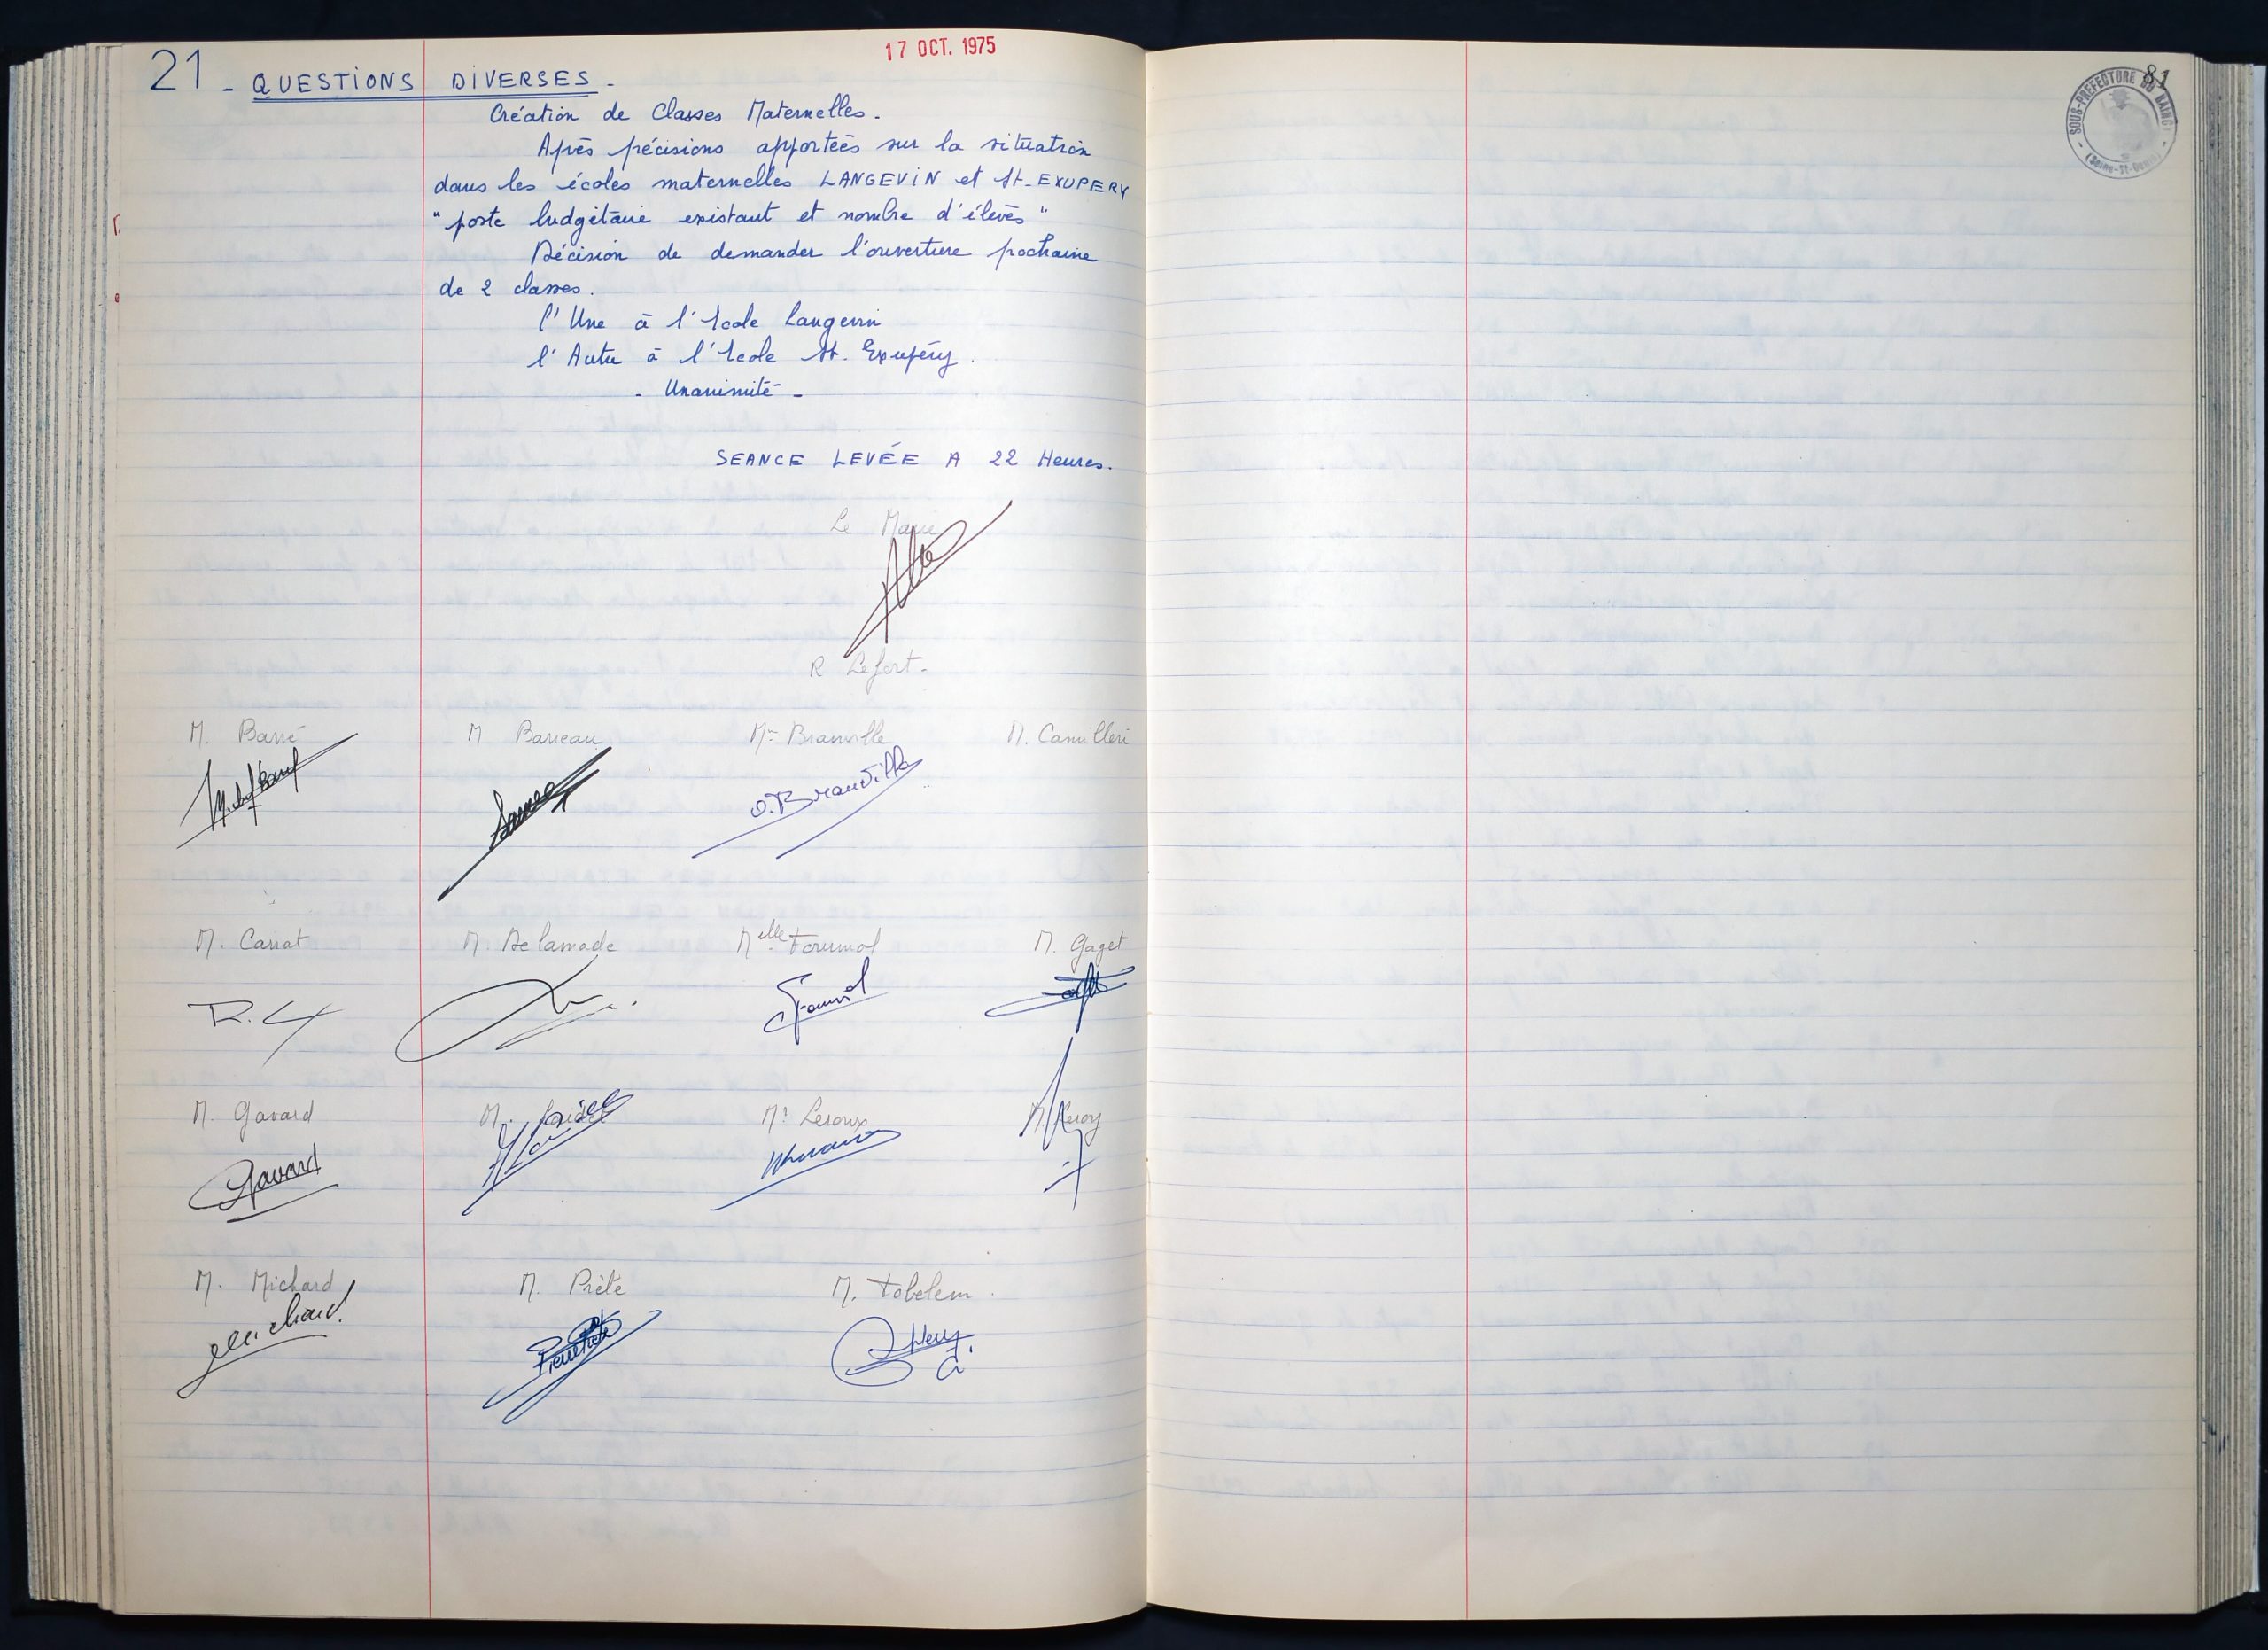 17 OCT. 1975
21 - QUESTIONS DIVERSES -
Création de Classes Maternelles.
Après précisions apportées sur la situation
dans les écoles maternelles LANGEVIN et St-EXUPERY
"poste budgétaire existant et nombre d'élèves"
Décision de demander l'ouverture prochaine
de 2 classes.
l'Une à l'école Langevin
l'Autre à l'école St. Exupéry.
- Unanimité -
SEANCE LEVÉE A 22 Heures.
Le Maire
R Lefort-
M. Barré M Barreau Me Branville M. Camilleri
O. Branville
M. Carrat M Delamade Melle Fournol M. Gaget
Fournol
M. Gavard M. Me Leroux M. Leroy
Gavard
M. Michard M. Prète M. Tobelem.
Michard
81
SOUS-PREFECTURE DU RAINCY
(Seine-St-Denis)